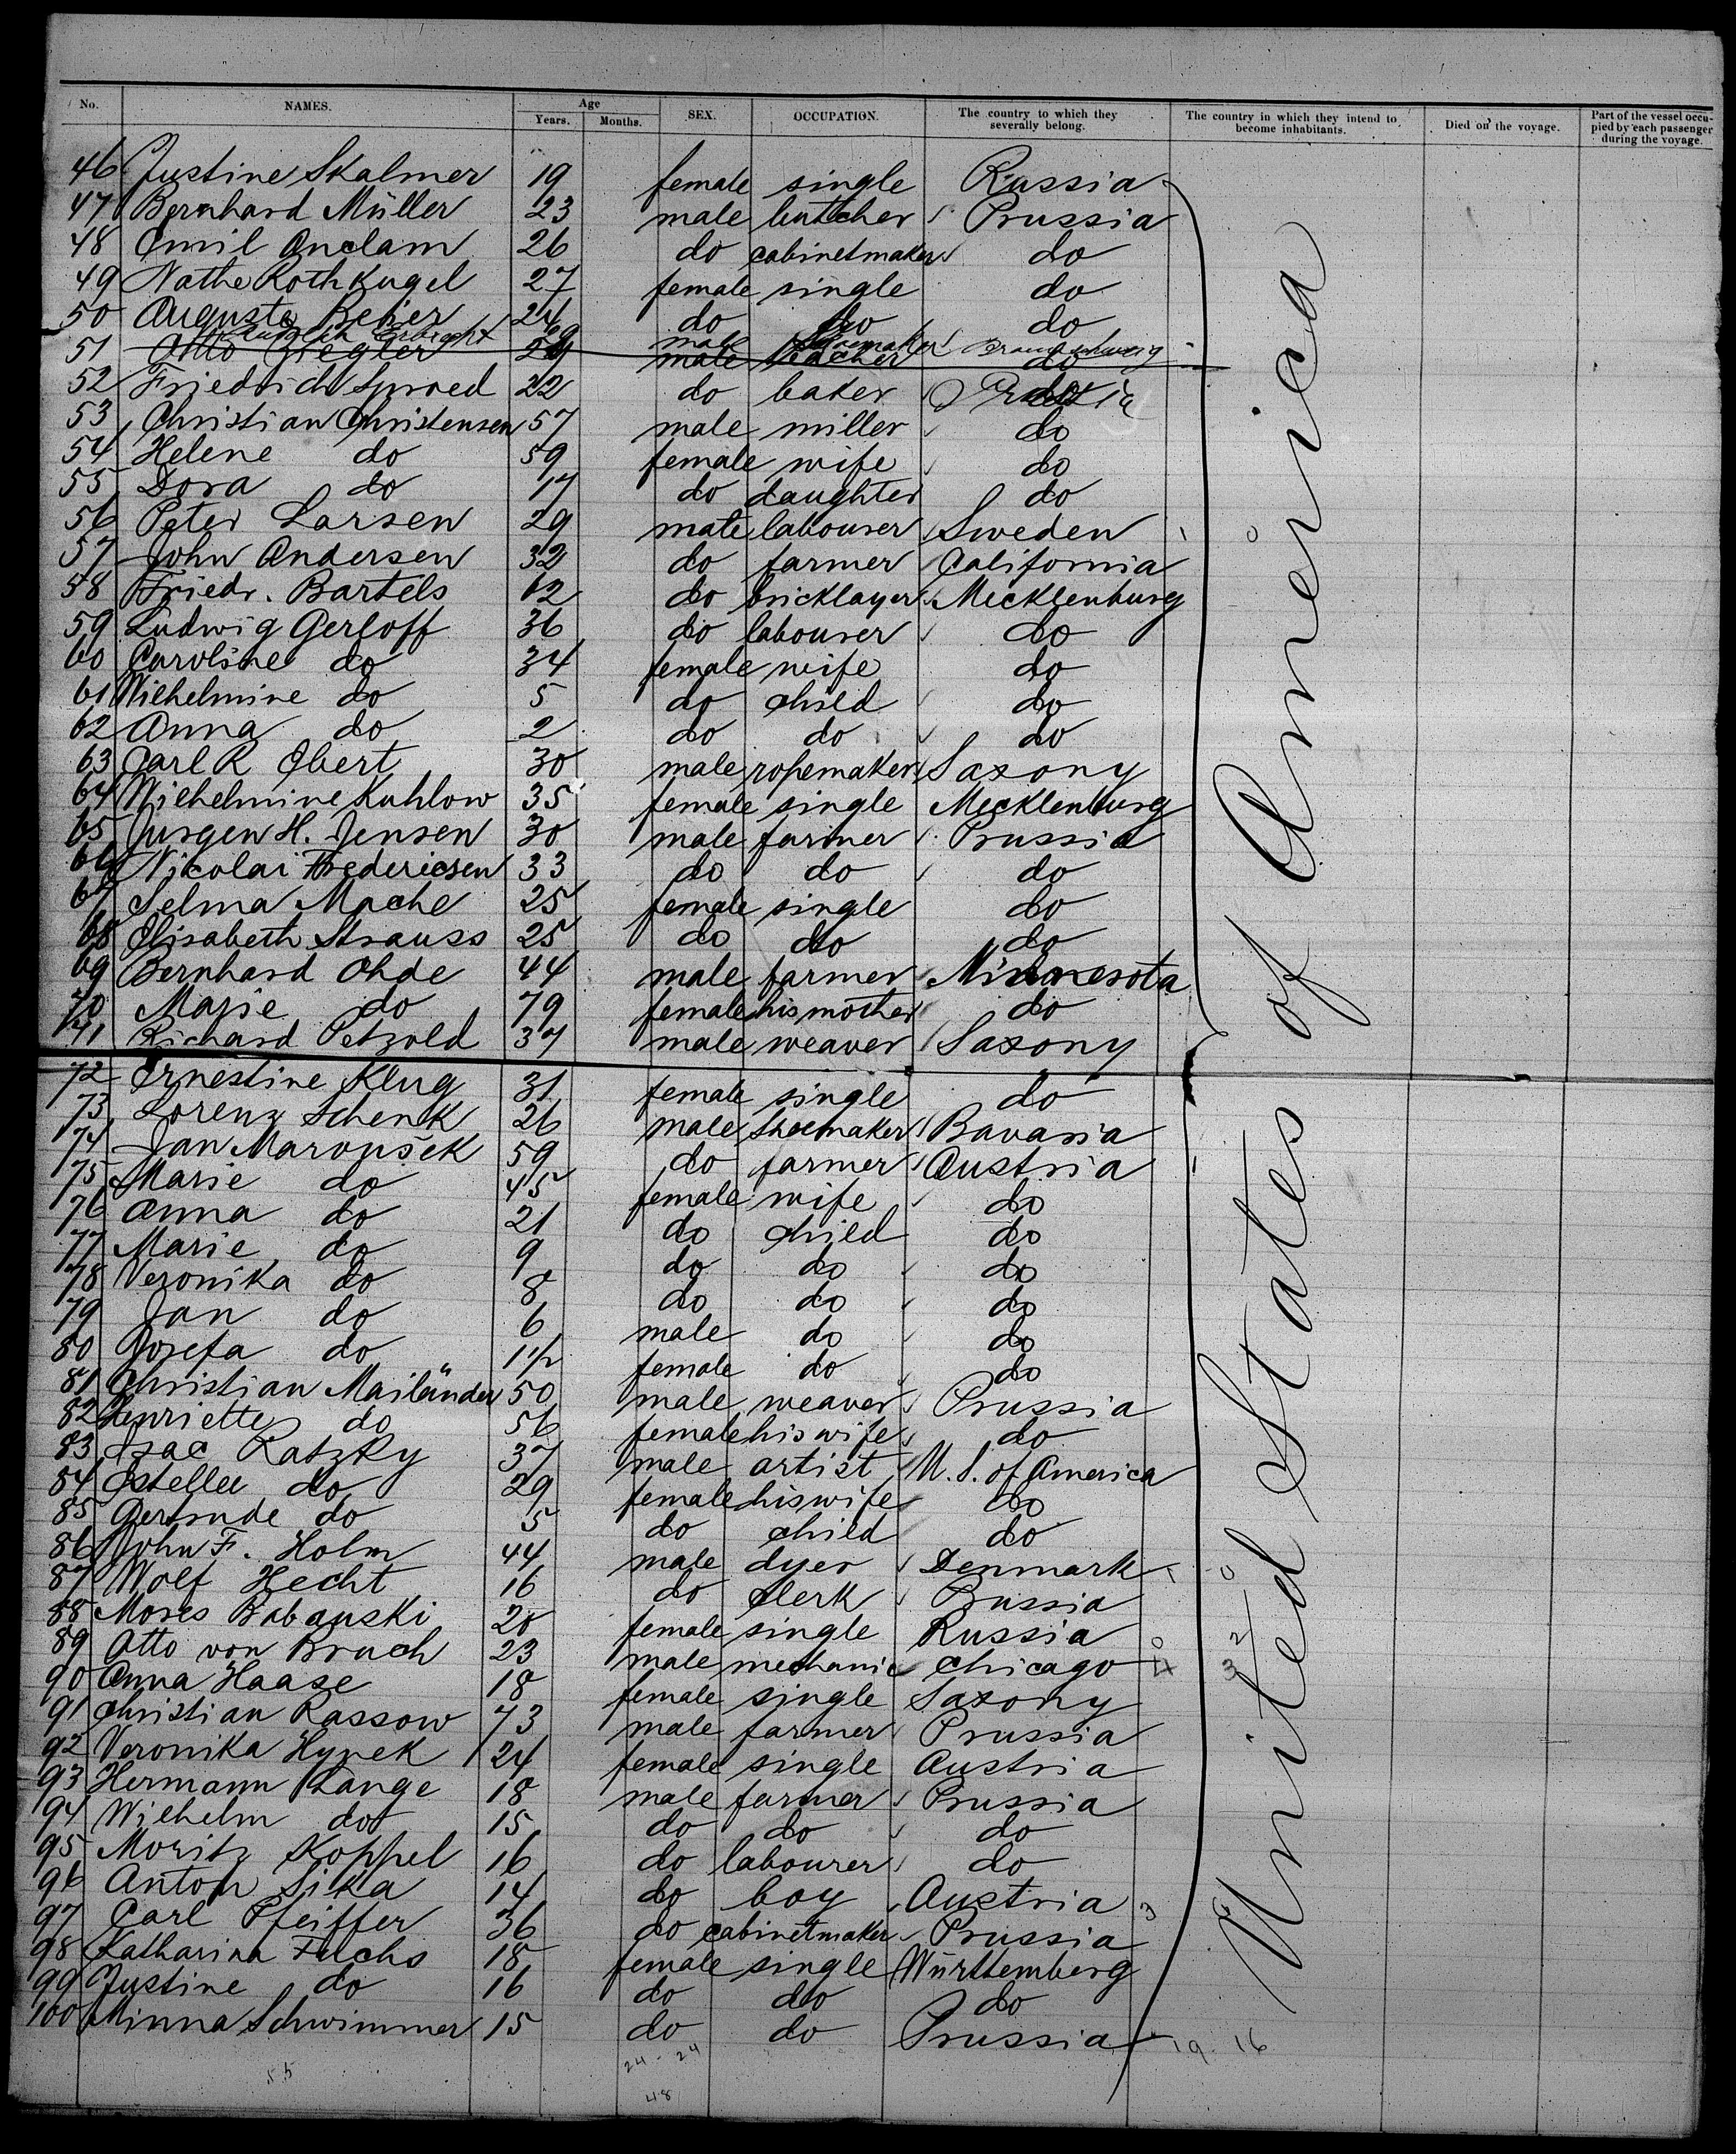 No. NAMES. Age Years. Months. SEX. OCCUPATION. The country to which they severally belong. The country in which they intend to become inhabitants. Died on the voyage. Part of the vessel occupied by each passenger during the voyage.
46 Justine Skalmer 19 female single Russia
47 Bernhard Müller 23 male butcher Prussia
48 Emil Anclam 26 do cabinetmaker do
49 Nathe Rothkugel 27 female single do
50 Auguste Beier 24 do do do
male shoemaker Braunschweig
51 Otto Ziegler 29 male teacher do
52 Friedrich Sproed 22 do baker Prussia
53 Christian Christensen 57 male miller do
54 Helene do 59 female wife do
55 Dora do 17 do daughter do
56 Peter Larsen 29 male labourer Sweden
57 John Andersen 32 do farmer California
58 Friedr. Bartels 62 do bricklayer Mecklenburg
59 Ludwig Gerloff 36 do labourer do
60 Caroline do 34 female wife do
61 Wilhelmine do 5 do child do
62 Anna do 2 do do do
63 Carl R Ebert 30 male ropemaker Saxony
64 Wilhelmine Kuhlow 35 female single Mecklenburg
65 Jurgen H. Jensen 30 male farmer Prussia
66 Nicolai Fredericsen 33 do do do
67 Selma Mache 25 female single do
68 Elisabeth Strauss 25 do do do
69 Bernhard Ohde 44 male farmer Minnesota
70 Marie do 79 female his mother do
71 Richard Petzold 37 male weaver Saxony
72 Ernestine Klug 31 female single do
73 Lorenz Schenk 26 male shoemaker Bavaria
74 Jan Maroušek 59 do farmer Austria
75 Marie do 45 female wife do
76 Anna do 21 do child do
77 Marie do 9 do do do
78 Veronika do 8 do do do
79 Jan do 6 male do do
80 Josefa do 1 1/2 female do do
81 Christian Mailänder 50 male weaver Prussia
82 Henriette do 56 female his wife do
83 Isac Ratzky 37 male artist U. S. of America
84 Estelle do 29 female his wife do
85 Gertrude do 5 do child do
86 John F. Holm 44 male dyer Denmark
87 Wolf Hecht 16 do clerk Prussia
88 Moses Babauski 20 female single Russia
89 Otto von Bruch 23 male mechanic Chicago
90 Anna Haase 18 female single Saxony
91 Christian Rassow 73 male farmer Prussia
92 Veronika Hynek 24 female single Austria
93 Hermann Lange 18 male farmer Prussia
94 Wilhelm do 15 do do do
95 Moritz Koppel 16 do labourer do
96 Anton Sika 14 do boy Austria
97 Carl Pfeiffer 36 do cabinetmaker Prussia
98 Katharina Fuchs 18 female single Württemberg
99 Justine do 16 do do do
100 Minna Schwimmer 15 do do Prussia
19 16
24 - 24
55
48
United States of America